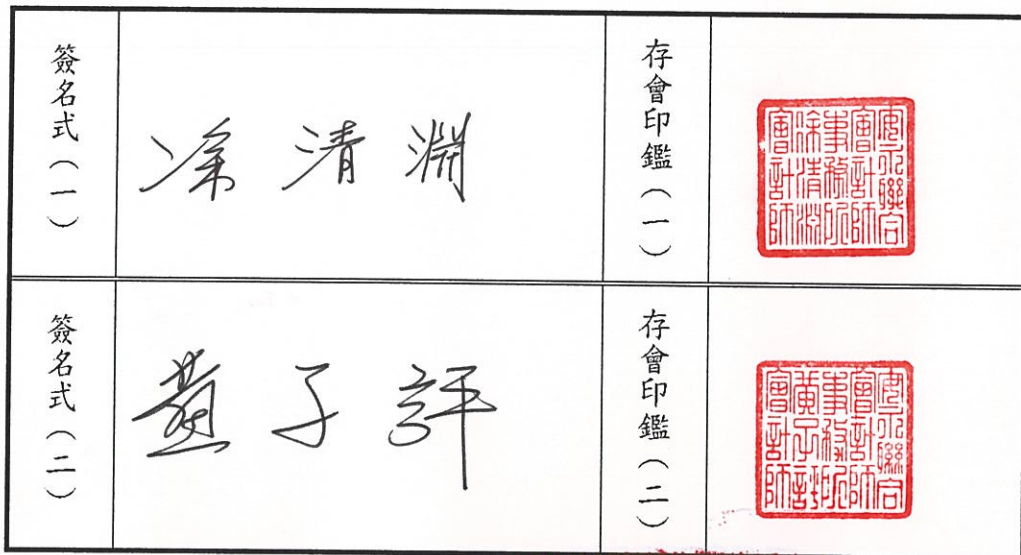 簽名式（一）
涂清淵
存會印鑑（一）
安永聯合
會計師
事務所
涂清淵
會計師
簽名式（二）
黃子評
存會印鑑（二）
安永聯合
會計師
事務所
黃子評
會計師